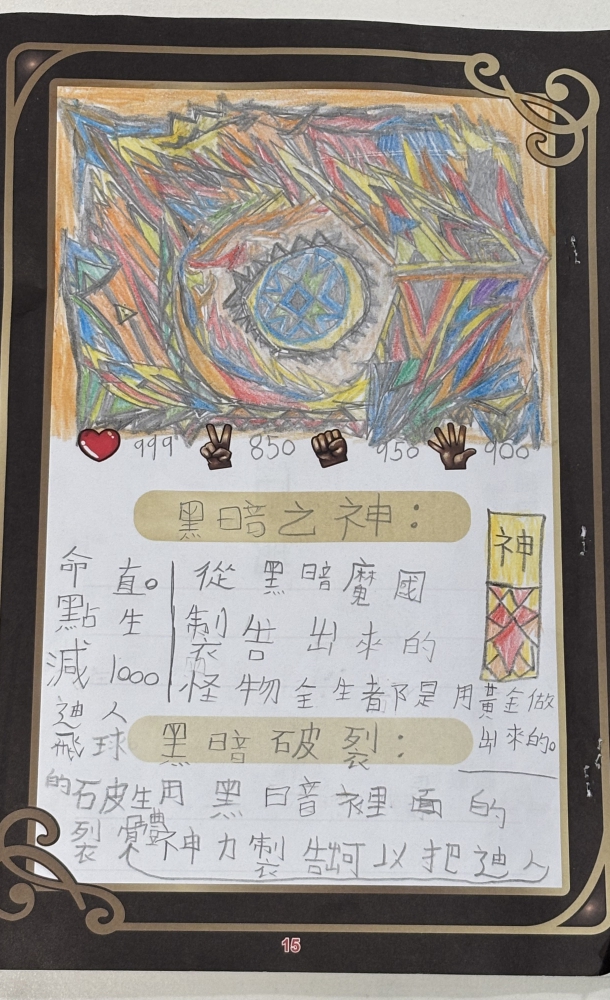 999 850 950 900
黑暗之神：
神
從黑暗魔國
製告出來的
怪物全生者都是用黃金做
出來的。
黑暗破裂：
生用黑暗裡面的
神力製告 可以把迪人
的石皮
裂
體
飛球
迪人
減1000
點生
命直。
15